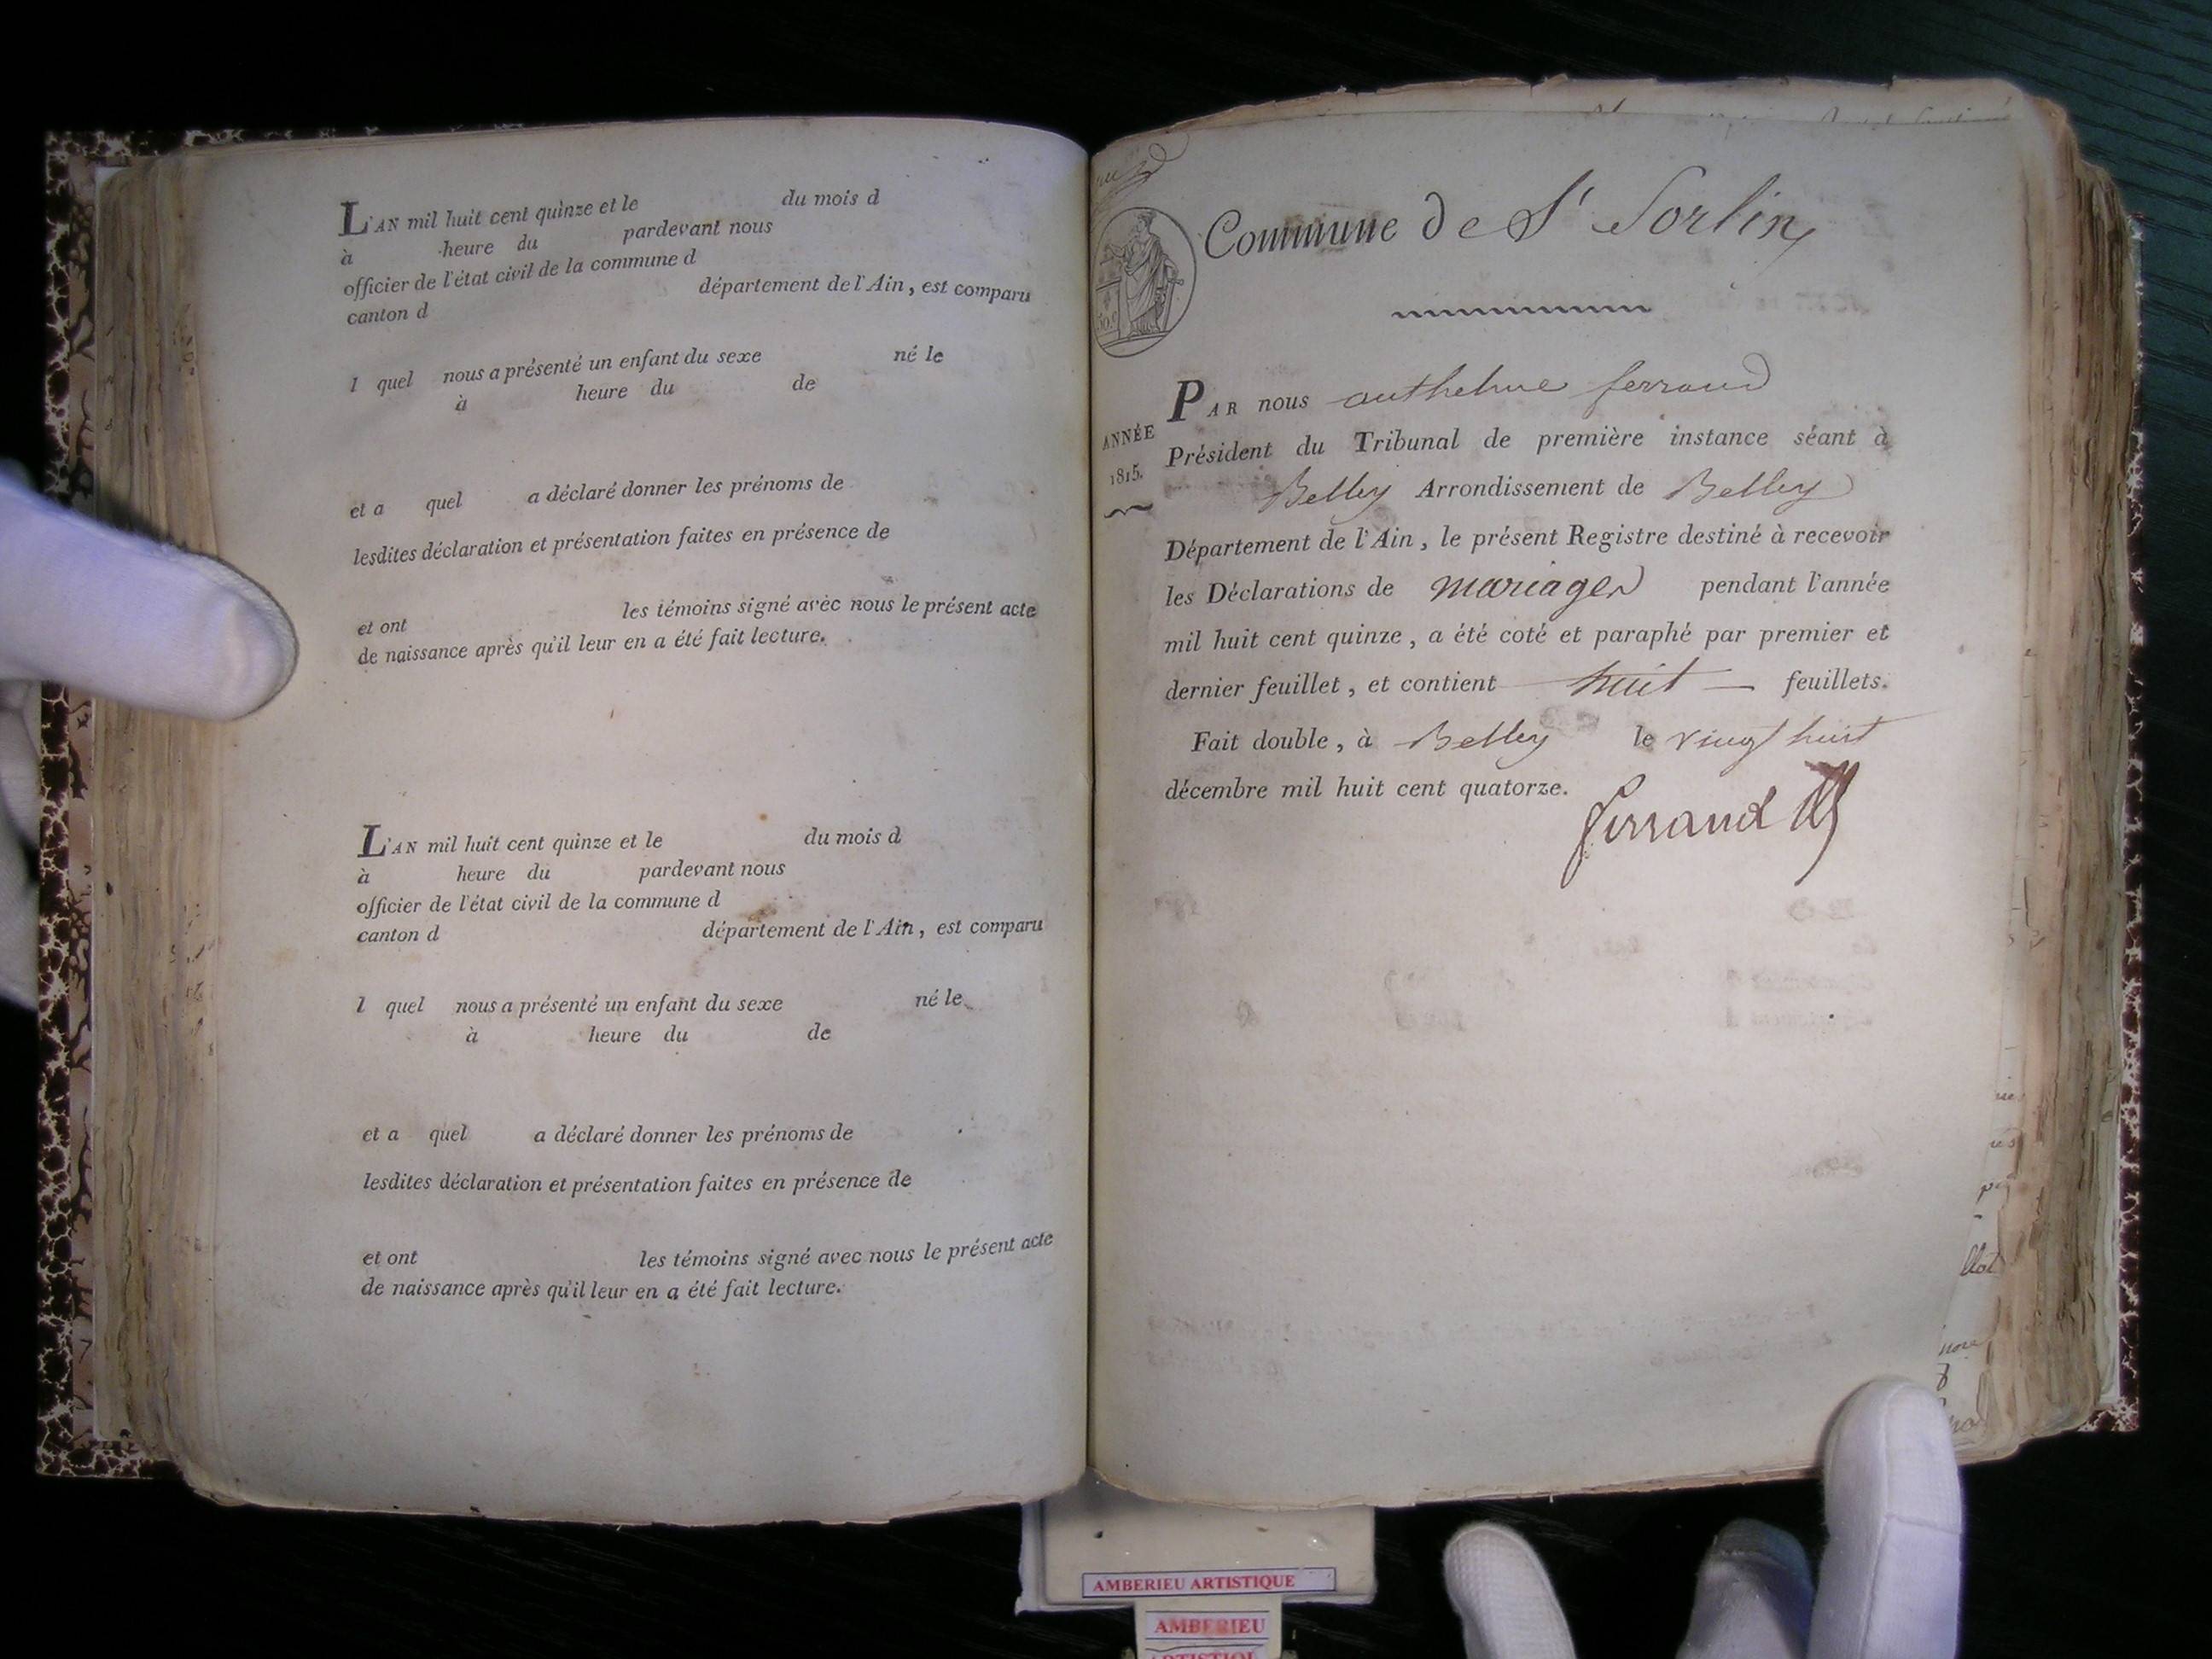 L'AN mil huit cent quinze et le du mois d
à heure du pardevant nous
officier de l'état civil de la commune d
canton d département de l'Ain, est comparu
l quel nous a présenté un enfant du sexe né le
à heure du de
et a quel a déclaré donner les prénoms de
lesdites déclaration et présentation faites en présence de
et ont les témoins signé avec nous le présent acte
de naissance après qu'il leur en a été fait lecture.
L'AN mil huit cent quinze et le du mois d
à heure du pardevant nous
officier de l'état civil de la commune d
canton d département de l'Ain, est comparu
l quel nous a présenté un enfant du sexe né le
à heure du de
et a quel a déclaré donner les prénoms de
lesdites déclaration et présentation faites en présence de
et ont les témoins signé avec nous le présent acte
de naissance après qu'il leur en a été fait lecture.
Commune de St Sorlin
ANNÉE
1815.
PAR nous anthelme ferrand
Président du Tribunal de première instance séant à
Belley Arrondissement de Belley
Département de l'Ain, le présent Registre destiné à recevoir
les Déclarations de mariages pendant l'année
mil huit cent quinze, a été coté et paraphé par premier et
dernier feuillet, et contient huit feuillets.
Fait double, à Belley le vingt huit
décembre mil huit cent quatorze.
ferrand
AMBERIEU ARTISTIQUE
AMBERIEU
ARTISTIQUE